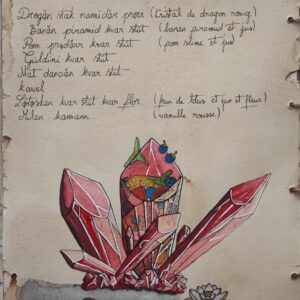 Drogān stat namidār prorr (Cristal de dragon roug)
Banān pirramid kvar stit (banan piramid et jus)
Pom prodārr kvar stit (pom slime et jus)
Guldini kvar stit
Mat danoān kvar stit
kavel
Lotossken kvar stit kvar flor (jus de lotus et jus et fleur)
Milan kamann (vanille rousse)